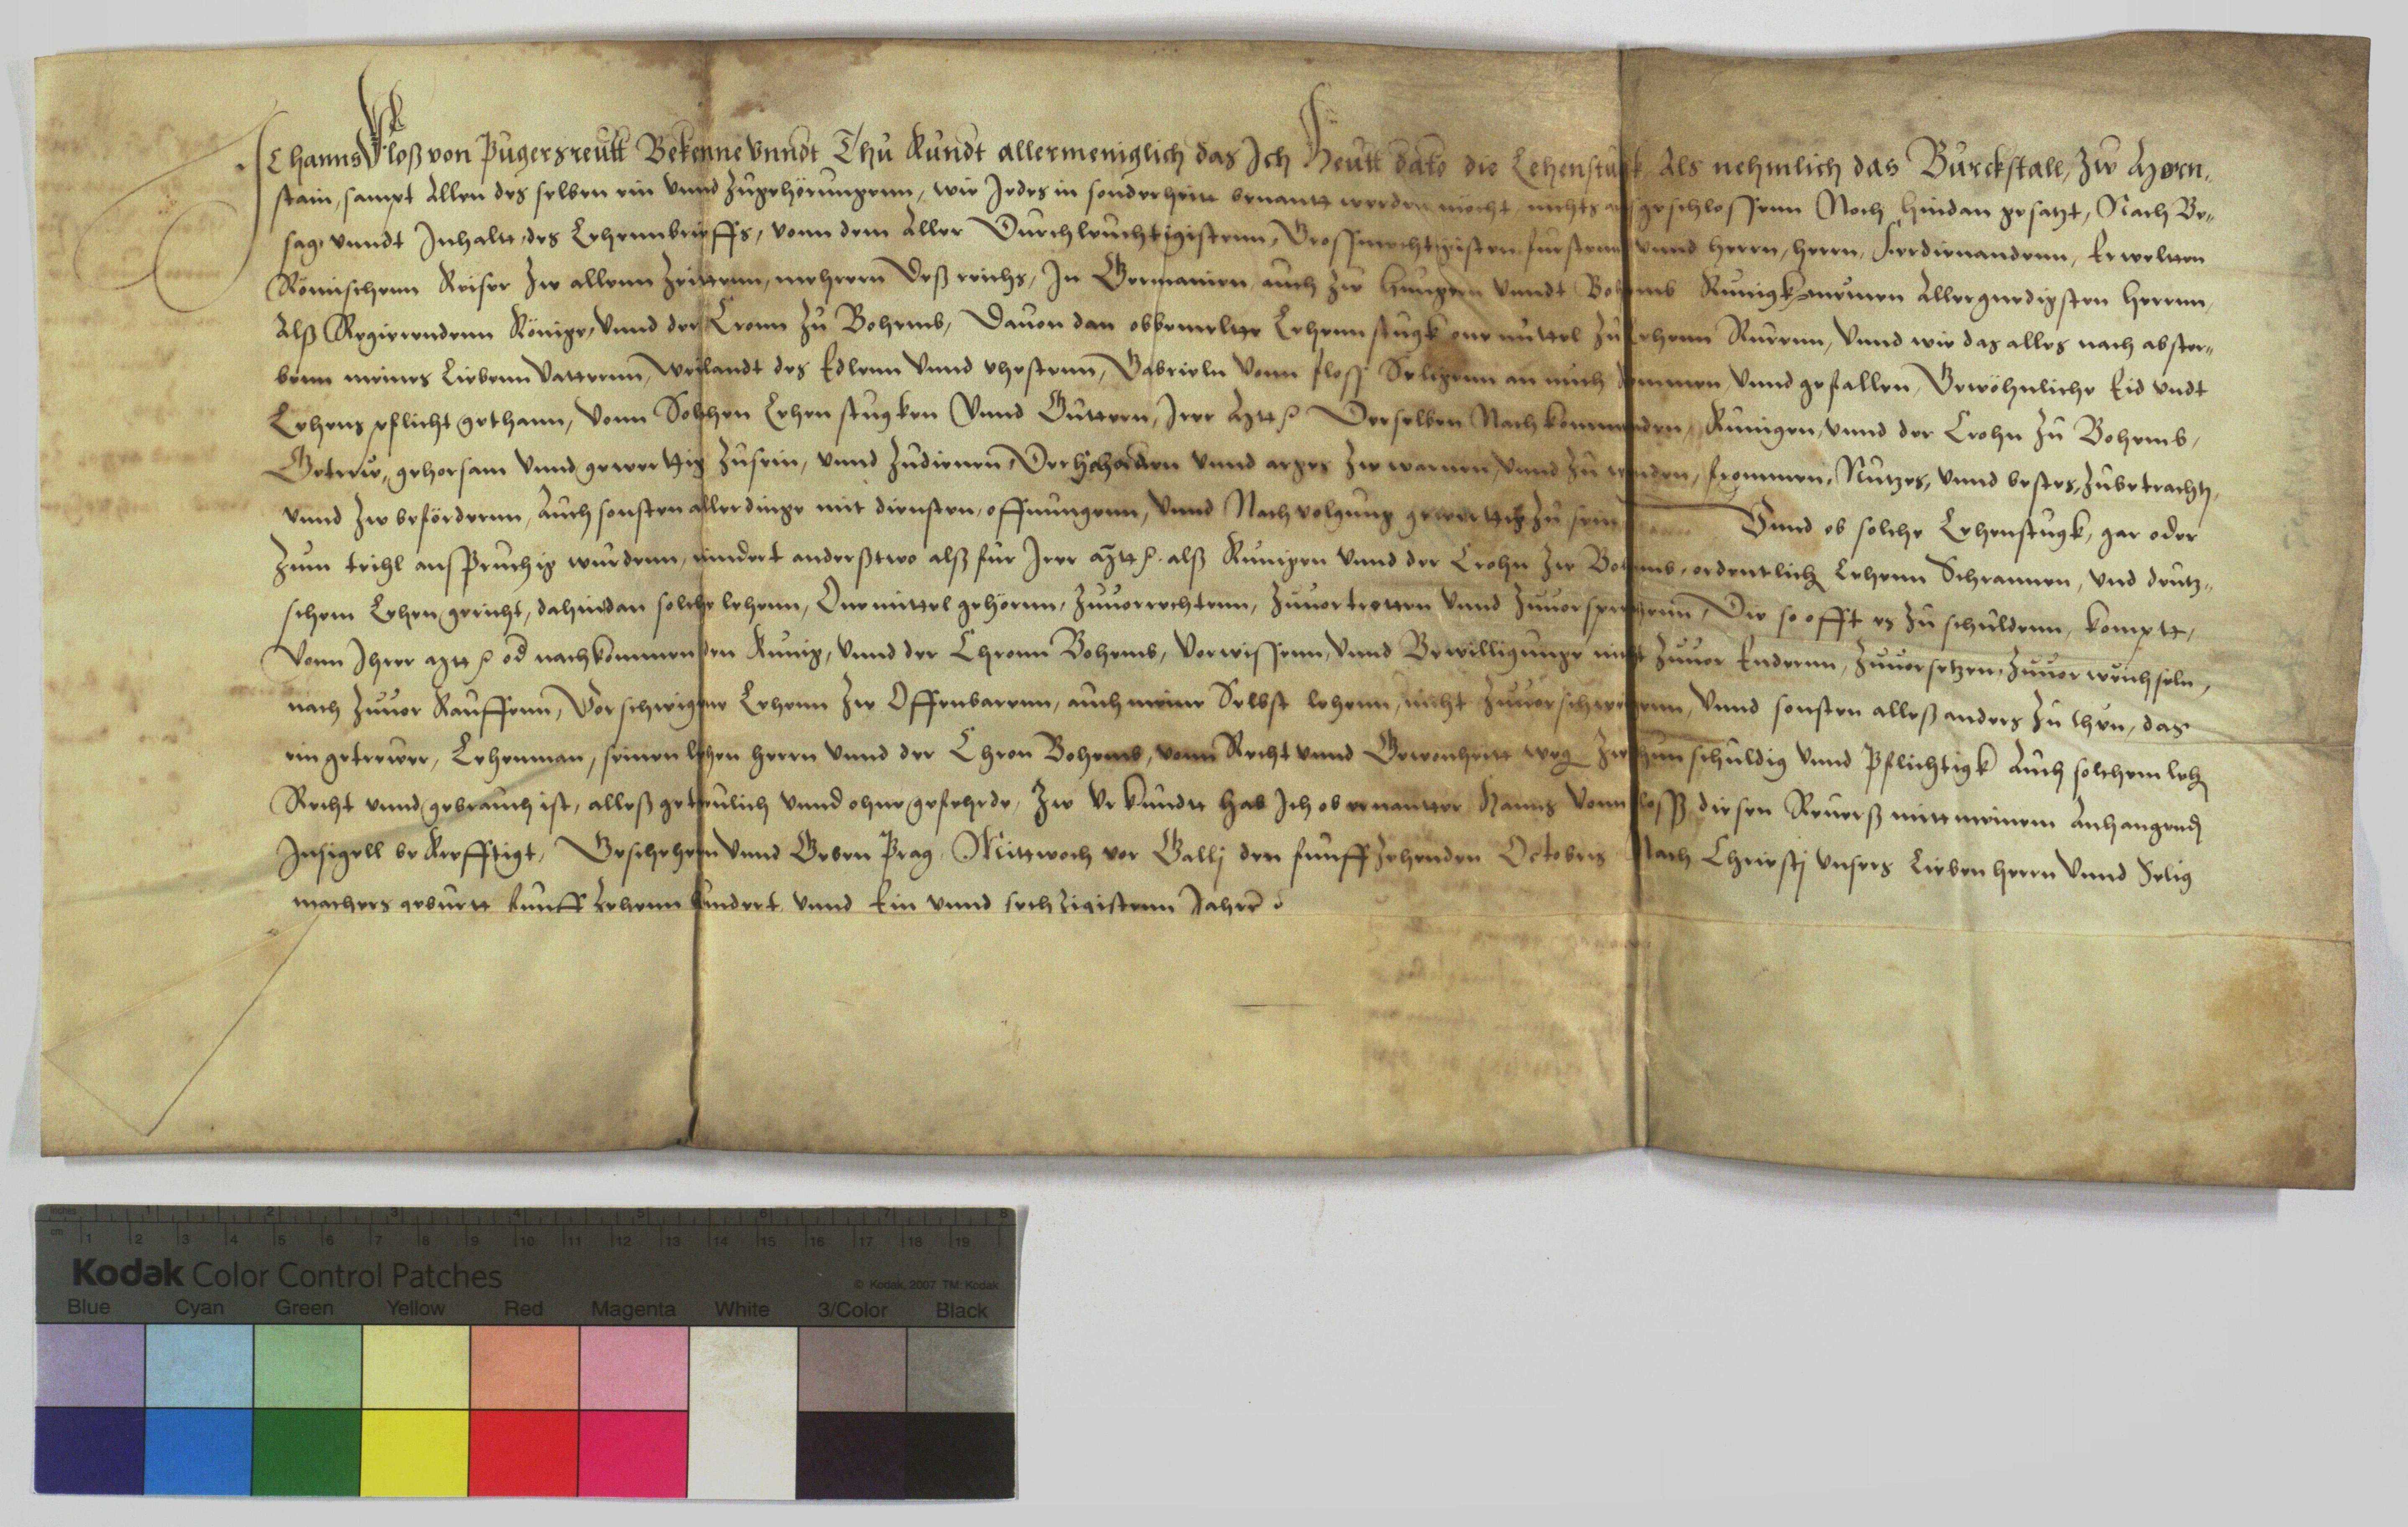 Ich Hanns Floß von Pugersreutt Bekenne vnndt Thu Kundt allermeniglich das Ich Heutt dato die Lehenstuck Als nehmlich das Burckstall, Zw Horn„
stain, sampt Allen des selben ein vnnd Zugehörungenn, wie Jedes in sonderheitt benantt werden möcht, nichts ausgeschlossenn Noch hindan gesatzt, Nach Be„
sag vnndt Inhaltt des Lehennbrieffs, vonn dem Aller Durchleuchtigistenn, Grossmechtigisten fursten vnnd herrn, herrn, Ferdienandenn, Erweltten
Römischenn Keiser Zw allenn Zeittenn, mehrern Deß reichs, In Germanien, auch Zw hungern vnndt Bohems Kunigk meinen Allergnedigsten herrnn,
Alß Regierendenn Könige, vnnd der Cronn Zu Bohemb, Dauon dan obbemeltte Lehennstugk one mittel Zu Lehenn Rurenn, vnnd wie das alles nach abster„
benn meines Liebenn Vatternn, weilandt des Edlenn vnnd vhestenn, Gabrieln vonn floss Seligenn an mich kommen vnnd gefallen, Gewöhnliche Eid vndt
Lehens pflicht gethann, vonn Solchen Lehen stugken vnnd Guttern, Irer Mtt Derselben Nachkommenden, Kunigen, vnnd der Crohn Zu Bohemb,
Getrew, gehorsam vnnd gewerttig Zusein, vnnd Zudienen, Der schaden vnnd arges Zw warnen, vnnd Zu wenden, frommen, Nutzes, vnnd bestes, Zubetrachtn,
vnnd Zw befördernn, Auch sonsten allerdinge mit diensten, offnungenn, vnnd Nachvolgung gewerttig Zu sein Vnnd ob solche Lehenstugk, gar oder
Zum teihl anspruchig wurdenn, nindert anderßtwo alß fur Irer Mtt. alß Kunigen vnnd der Crohn Zw Bohemb, ordentlich Lehenn Schrannen, vnd deutz„
schem Lehen gericht, dahindan solche lehenn, One mittel gehörnn, Zuuorrechtenn, Zuuortretten vnnd Zuuorsprechenn, Die so offt es Zu schuldenn, komptt,
Vonn Ihrer Mtt od nachkommenden Kunig, vnnd der Chronn Bohemb, Vorwissenn, vnnd Bewilligunge nicht Zuuor Enderenn, Zuuorsetzen, Zuuor weichseln,
nach Zuuor Kauffenn, Vorschwigene Lehenn Zw Offenbarenn, auch meine Selbst lehenn, nicht Zuuorschweigenn, vnnd sonsten alleß anders Zu thun, das
ein getrewer, Lehenman, seinen lehen herrn vnnd der Chron Bohemb, vonn Recht vnnd Gewonheitt weg Zwthun schuldig vnnd Pflichtigk Auch solchem lehn
Recht vnnd gebrauch ist, alleß getreulich vnnd ohne gefehrde, Zw Vrkundtt hab Ich obernantter Hanns Vonn floß diesen Reuerß mitt meinem Anhangendn
Insigell bekrefftigt, Geschehenn vnnd Geben Prag, Mittwoch vor Gallj den funffzehenden Octobris Nach Chriestj vnsers Lieben herrn vnnd Selig
machers geburtt funffzehenn hundert vnnd Ein vnnd sechzigistenn Jahre
Kodak Color Control Patches
© Kodak, 2007 TM: Kodak
inches 1 2 3 4 5 6 7 8
cm 1 2 3 4 5 6 7 8 9 10 11 12 13 14 15 16 17 18 19
Blue Cyan Green Yellow Red Magenta White 3/Color Black